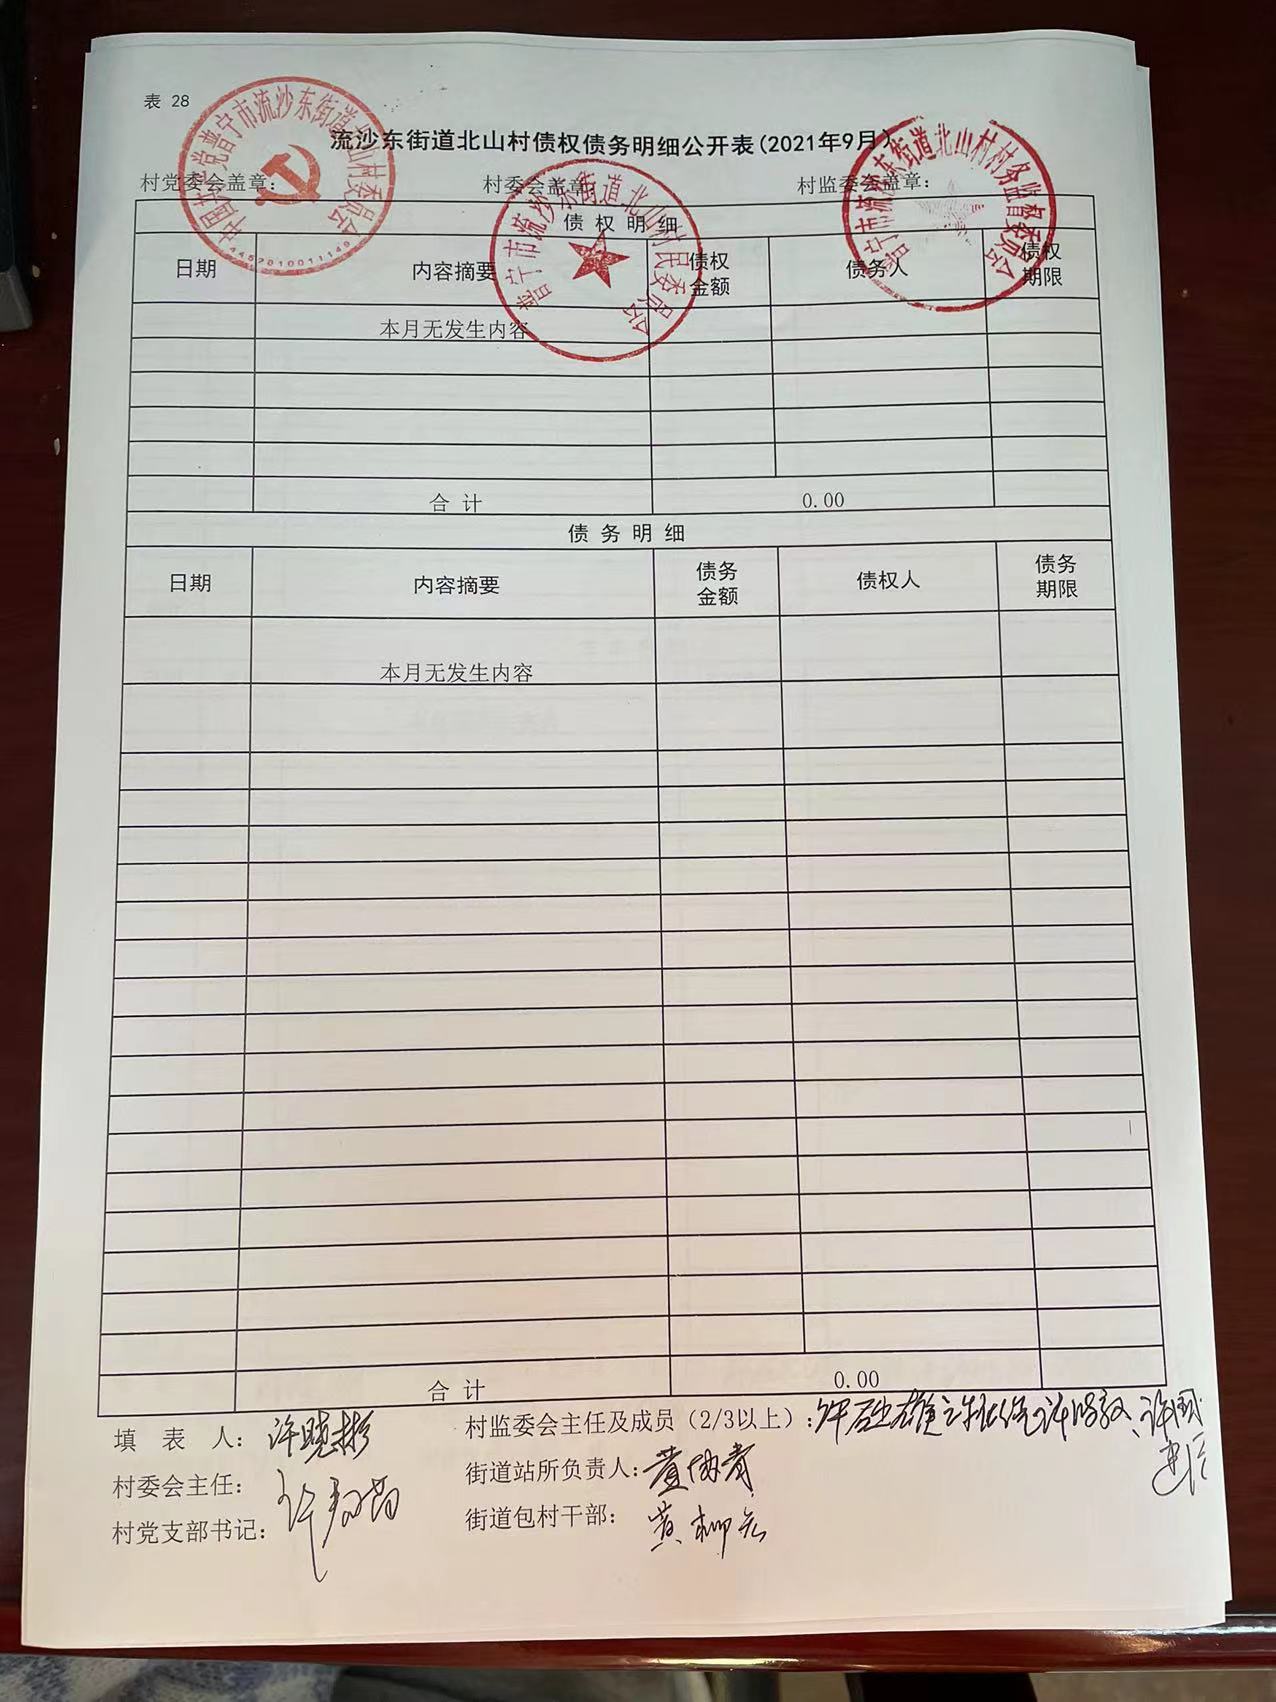 表 28
流沙东街道北山村债权债务明细公开表(2021年9月)
村党委会盖章： 村委会盖章： 村监委会盖章：
中国共产党普宁市流沙东街道北山村委员会
4452010011149
普宁市流沙东街道北山村民委员会
普宁市流沙东街道北山村村务监督委员会
债 权 明 细
日期 内容摘要 债权金额 债务人 债权期限
本月无发生内容
合 计 0.00
债 务 明 细
日期 内容摘要 债务金额 债权人 债务期限
本月无发生内容
合 计 0.00
填 表 人：许晓彬 村监委会主任及成员（2/3以上）：
村委会主任： 街道站所负责人：
村党支部书记： 街道包村干部：